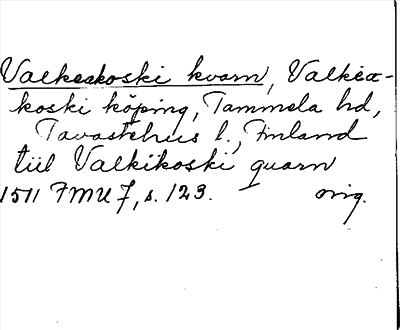 Valkeakoski kvarn, Valkea-
koski köping, Tammela hd,
Tavastehus l., Finland
tiil Valkikoski quarn
1511 FMU 7, s. 123. orig.